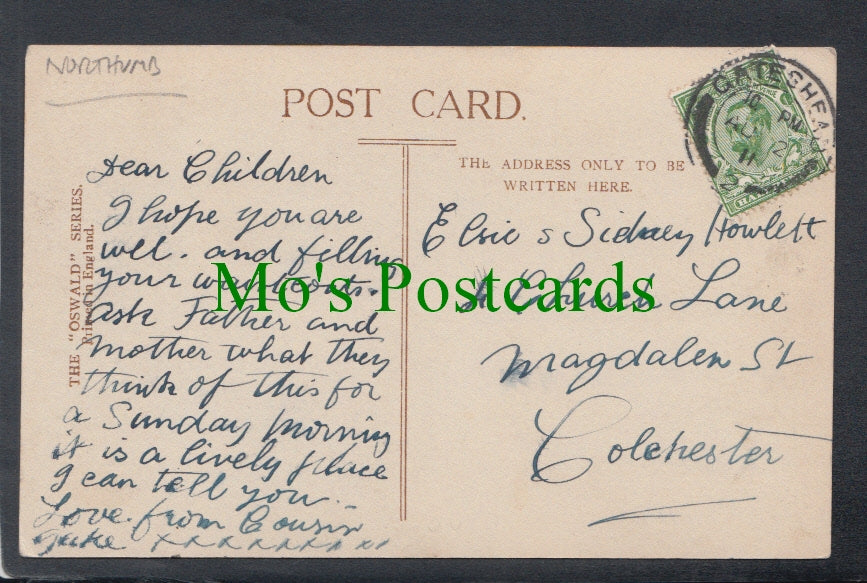 NORTHUMB
POST CARD.
THE ADDRESS ONLY TO BE
WRITTEN HERE.
THE "OSWALD" SERIES.
Printed in England.
GATESHEAD
PM
11
2
Dear Children
I hope you are
well. and filling
your waistcoats.
ask Father and
Mother what they
think of this for
a Sunday morning
it is a lively place
I can tell you.
Love from Cousin
xxxxxxxxx
Elsie & Sidney Howlett
Church Lane
Magdalen St
Colchester
Mo's Postcards